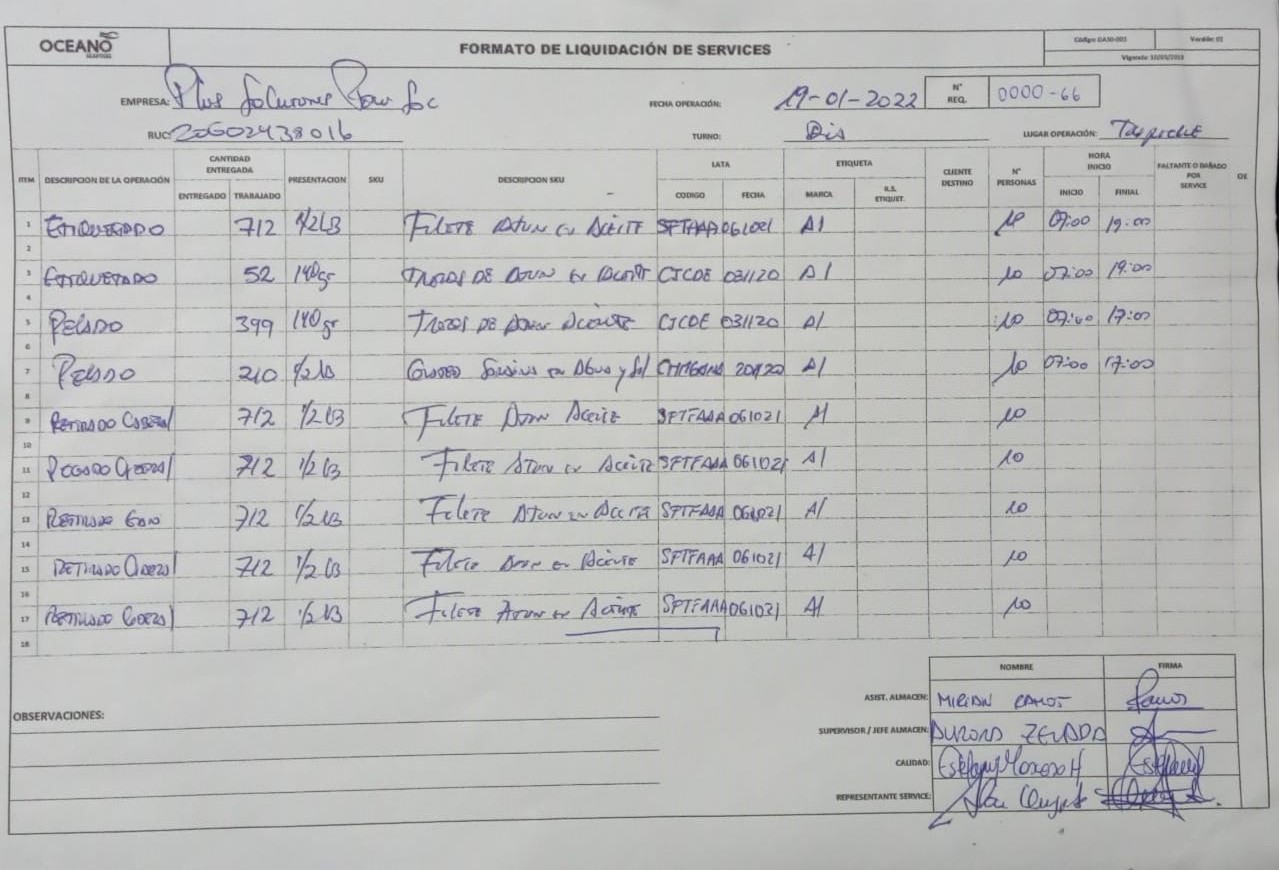 OCEANO
FORMATO DE LIQUIDACIÓN DE SERVICES
Código: GA50-003 Versión: 01
EMPRESA: Plus Soluciones Perú Sac FECHA OPERACIÓN: 19-01-2022 N° REQ. 0000-66
RUC: 20602438016 TURNO: Dia LUGAR OPERACIÓN:
ITEM DESCRIPCION DE LA OPERACIÓN CANTIDAD ENTREGADA ENTREGADO TRABAJADO PRESENTACION SKU DESCRIPCION SKU LATA CODIGO FECHA ETIQUETA MARCA R.S. ETIQUET. CLIENTE DESTINO N° PERSONAS HORA INICIO INICIO FINIAL FALTANTE O DAÑADO POR SERVICE OE
1 ETIQUETADO 712 1/2 LB FILETE ATUN EN ACEITE SFTFAAA 061021 A1 10 07:00 19:00
2
3 ETIQUETADO 52 140gr TROZOS DE ATUN EN ACEITE CJCDE 031120 A1 10 07:00 19:00
4
5 PELADO 399 140gr TROZOS DE ATUN ACEITE CJCDE 031120 A1 10 07:00 17:00
6
7 PELADO 210 1/2 LB en Agua y Sal 10 07:00 17:00
8
9 RETIRADO 712 1/2 LB FILETE ATUN ACEITE SFTFAAA 061021 A1 10
10
11 712 1/2 LB FILETE ATUN EN ACEITE SFTFAAA 061021 A1 10
12
13 RETIRADO 712 1/2 LB FILETE ATUN EN ACEITE SFTFAAA 061021 A1 10
14
15 RETIRADO 712 1/2 LB FILETE ATUN EN ACEITE SFTFAAA 061021 A1 10
16
17 RETIRADO 712 1/2 LB FILETE ATUN EN ACEITE SFTFAAA 061021 A1 10
18
NOMBRE FIRMA
ASIST. ALMACEN: MIRIAN RAMOS Ramos
OBSERVACIONES:
SUPERVISOR / JEFE ALMACEN: AURORA ZELADA
CALIDAD: Estefany Moreno H
REPRESENTANTE SERVICE: